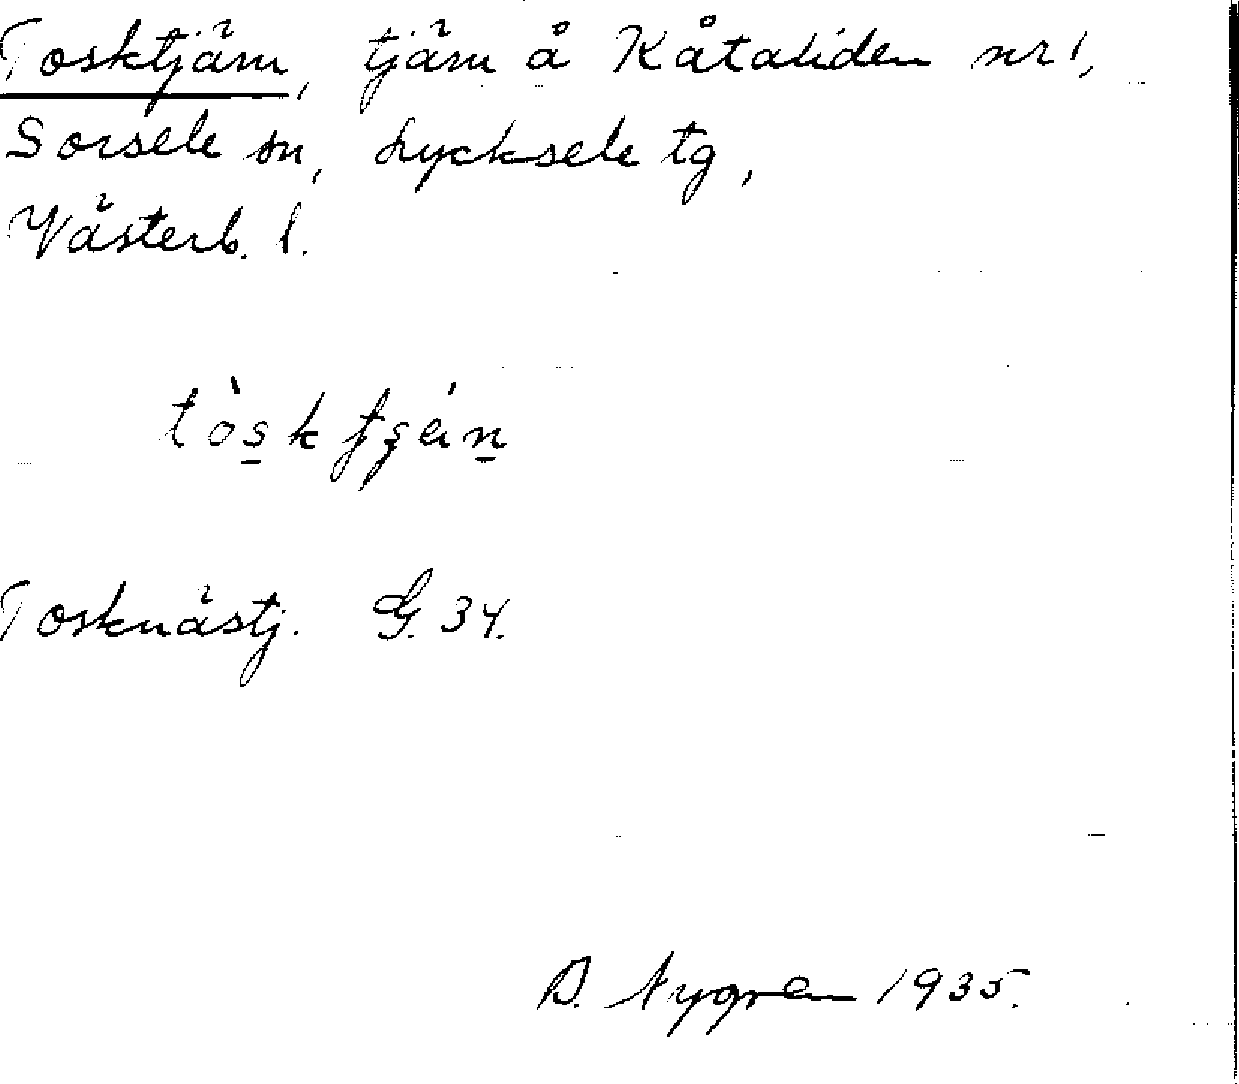 Tosktjärn, tjärn å Kåtaliden nr 1,
Sorsele sn, Lycksele tg,
Västerb. l.
Tosknästj. G. 34.
Nygren 1935.